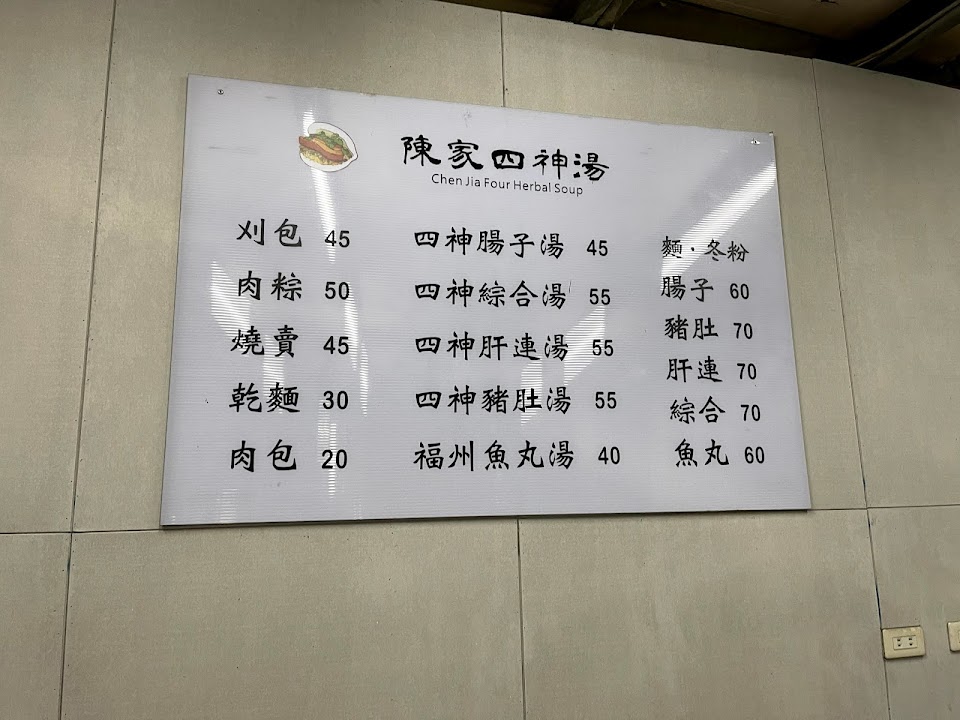 陳家四神湯
Chen Jia Four Herbal Soup
刈包 45
肉粽 50
燒賣 45
乾麵 30
肉包 20
四神腸子湯 45
四神綜合湯 55
四神肝連湯 55
四神豬肚湯 55
福州魚丸湯 40
麵·冬粉
腸子 60
豬肚 70
肝連 70
綜合 70
魚丸 60